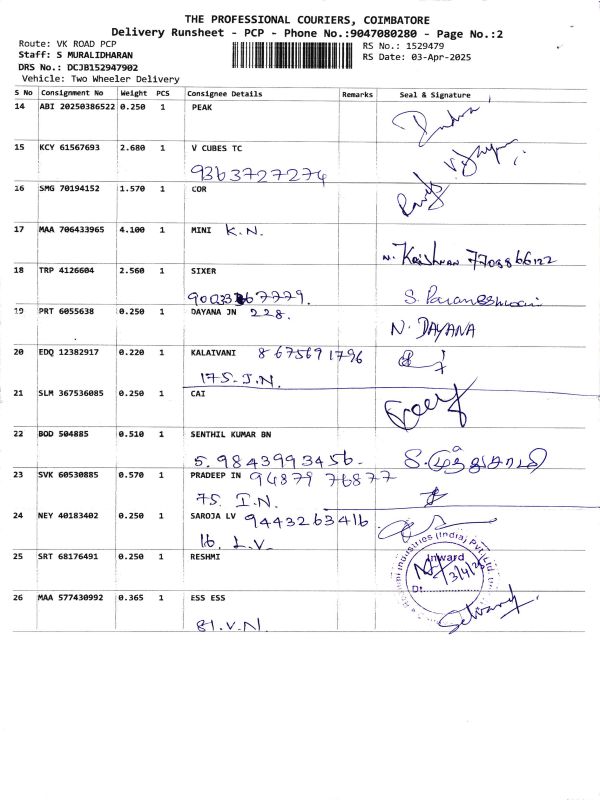 THE PROFESSIONAL COURIERS, COIMBATORE
Delivery Runsheet - PCP - Phone No.:9047080280 - Page No.:2
Route: VK ROAD PCP
RS No.: 1529479
Staff: S MURALIDHARAN
RS Date: 03-Apr-2025
DRS No.: DCJB152947902
Vehicle: Two Wheeler Delivery
S No Consignment No Weight PCS Consignee Details Remarks Seal & Signature
14 ABI 20250386522 0.250 1 PEAK
15 KCY 61567693 2.680 1 V CUBES TC
9363727274
16 SMG 70194152 1.570 1 COR
17 MAA 706433965 4.100 1 MINI K.N.
N. Krishnan 7708866122
18 TRP 4126604 2.560 1 SIXER
S. Parameshwari
19 PRT 6055638 0.250 1 DAYANA JN 228.
N. DAYANA
20 EDQ 12382917 0.220 1 KALAIVANI 8675691796
175. J.N.
21 SLM 367536085 0.250 1 CAI
22 BOD 504885 0.510 1 SENTHIL KUMAR BN
5. 9843993456.
23 SVK 60530885 0.570 1 PRADEEP IN 94879 76877
75. I.N.
24 NEY 40183402 0.250 1 SAROJA LV 9443263416
16. L.V.
25 SRT 68176491 0.250 1 RESHMI
Industries (India) Pvt. Ltd.
Inward
Dt. 3/4/25
26 MAA 577430992 0.365 1 ESS ESS
81.V.N.
Selvaraj